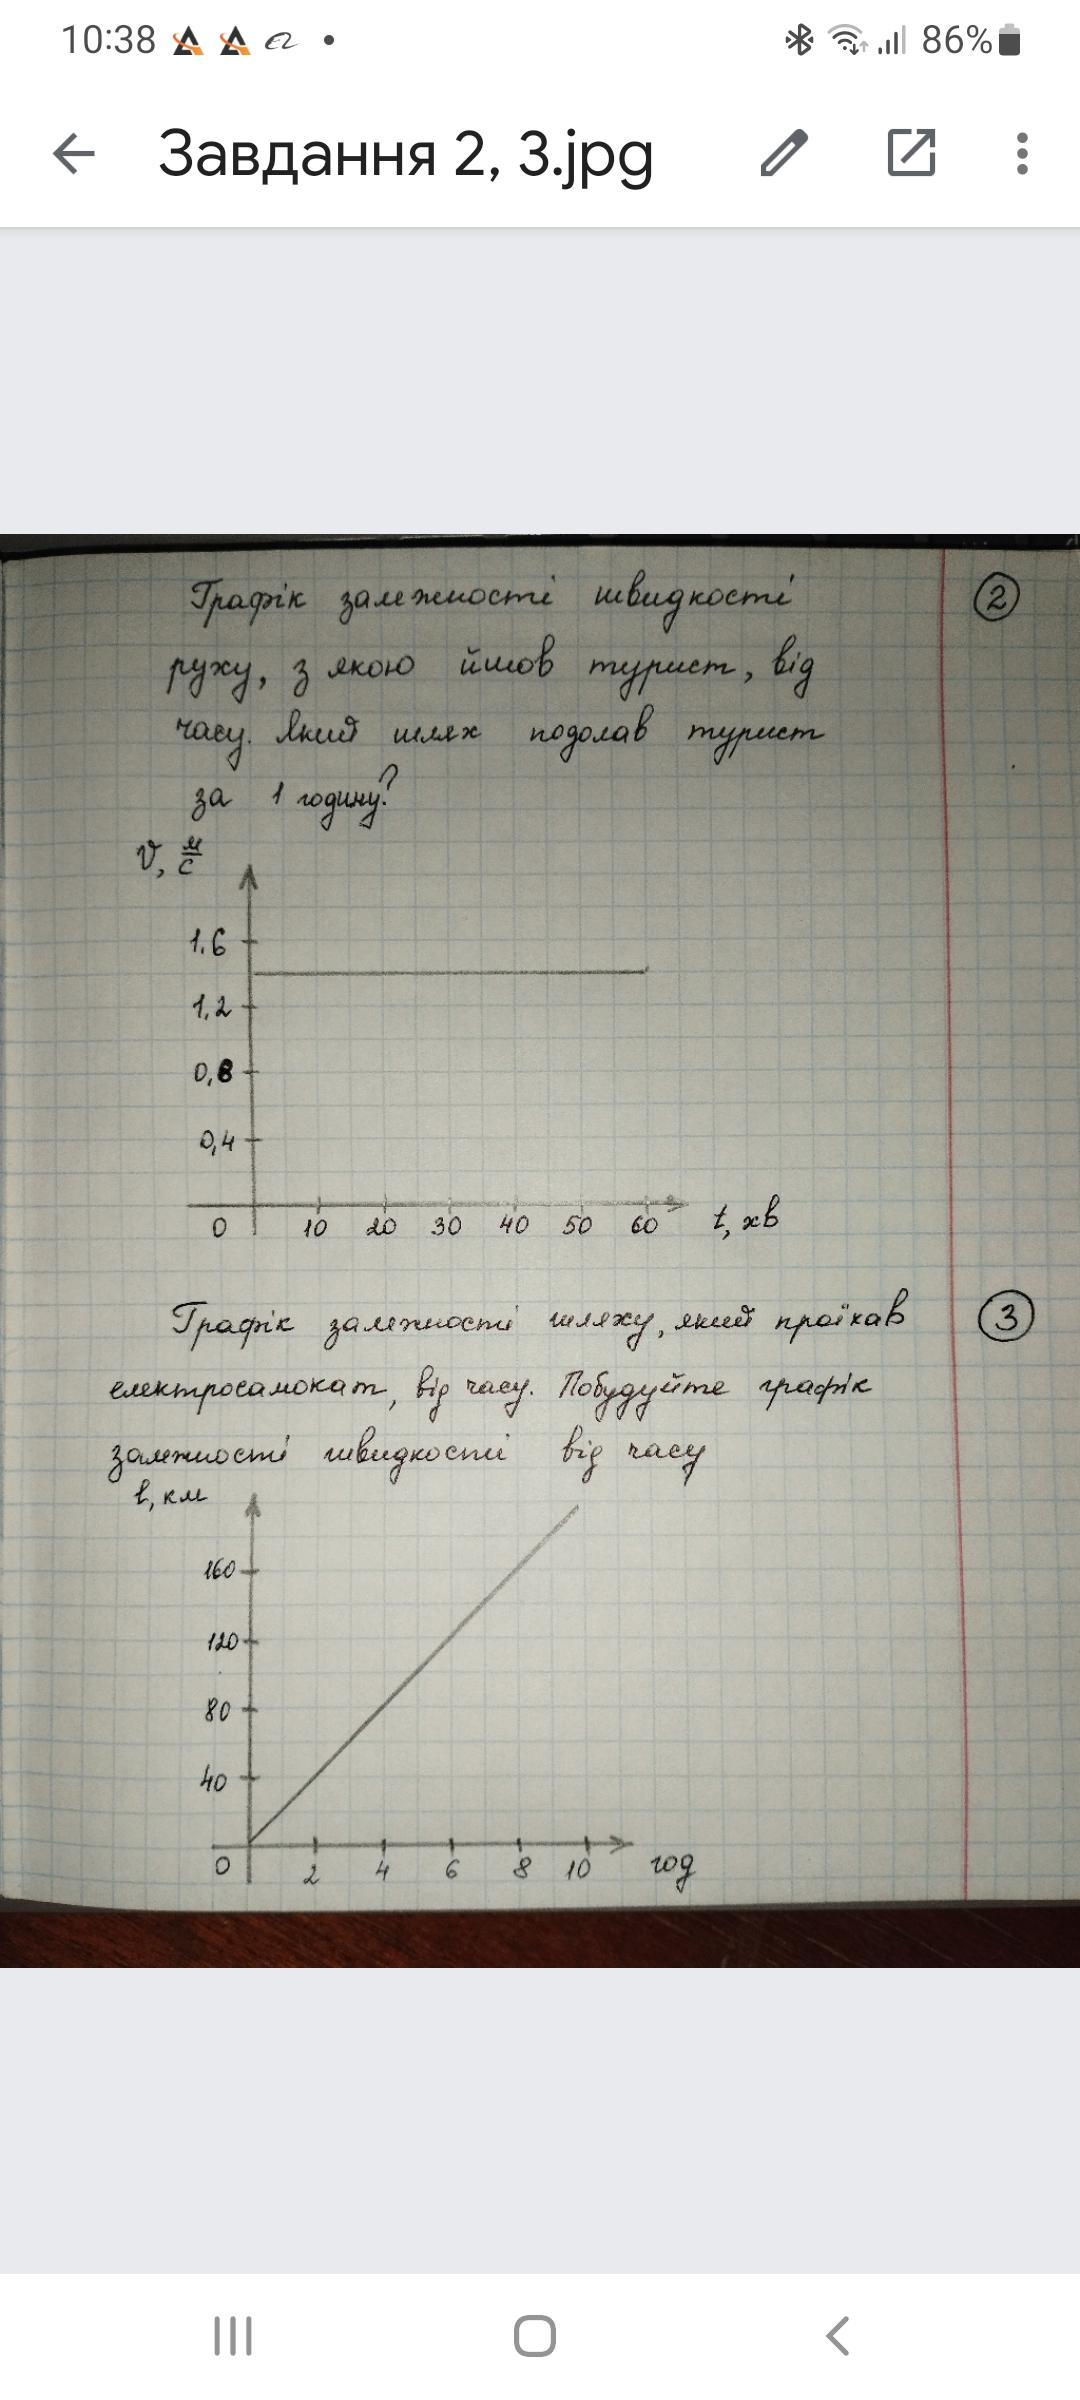 10:38
86%
Завдання 2, 3.jpg
Графік залежності швидкості
2
руху, з якою йшов турист, від
часу. Який шлях подолав турист
за 1 годину?
V, м/с
1.6
1,2
0,8
0,4
0 10 20 30 40 50 60 t, хв
Графік залежності шляху, який проїхав
3
електросамокат, від часу. Побудуйте графік
залежності швидкості від часу
l, км
160
120
80
40
0 2 4 6 8 10 год